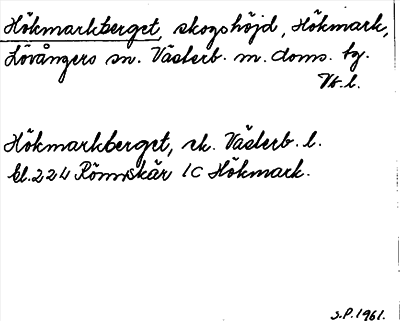 Hökmarkberget, skogshöjd, Hökmark,
Lövångers sn. Västerb. m. doms. tg.
Vb. l.
Hökmarkberget, sk. Västerb. l.
bl. 224 Rönnskär 1C Hökmark.
S.P. 1961.